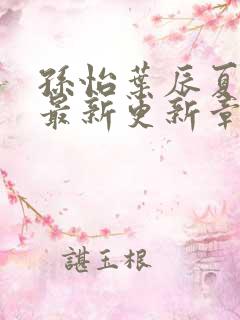 孫怡葉辰夏
最新更新章
諶玉根